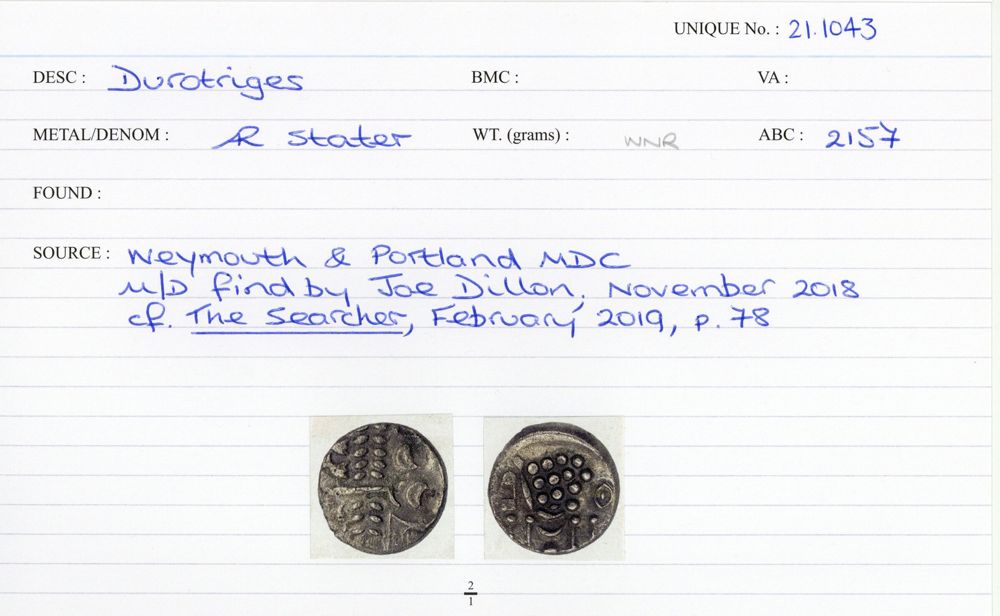 UNIQUE No. : 21.1043
DESC : Durotriges BMC : VA :
METAL/DENOM : AR Stater WT. (grams) : WNR ABC : 2157
FOUND :
SOURCE : Weymouth & Portland MDC
M/D find by Joe Dillon, November 2018
cf. The Searcher, February 2019, p. 78
2
1